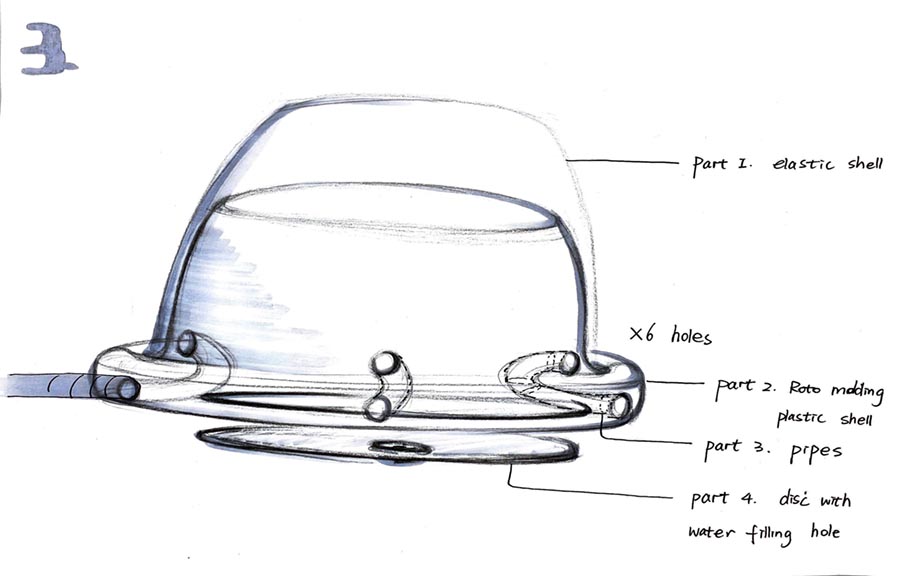 3
part 1. elastic shell
x6 holes
part 2. Roto molding
plastic shell
part 3. pipes
part 4. disc with
water filling hole